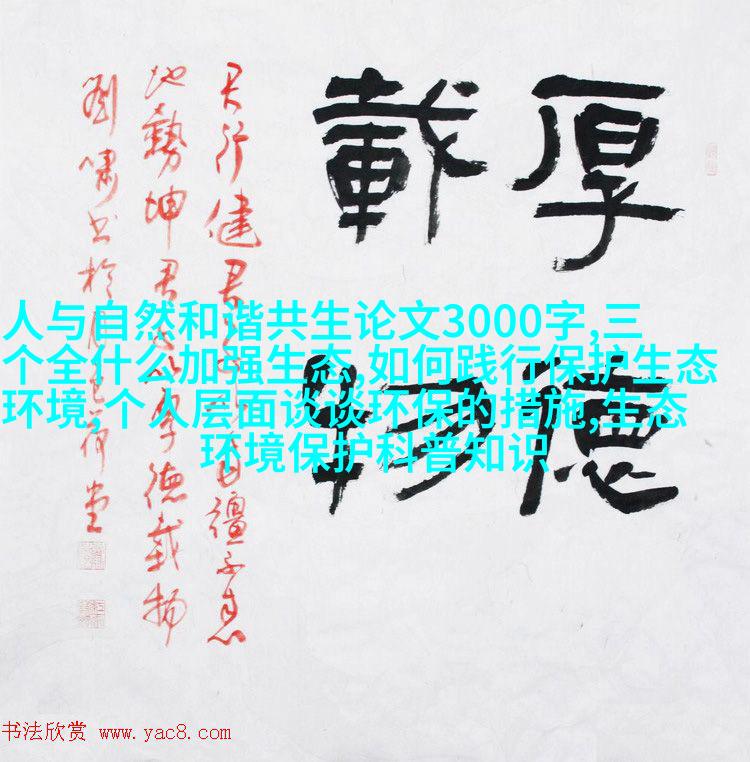 厚德
載物
天行健君子以自彊不息
地勢坤君子以厚德載物
人与自然和谐共生论文3000字,三
个全什么加强生态,如何践行保护生态
环境,个人层面谈谈环保的措施,生态
环境保护科普知识
书法欣赏 www.yac8.com